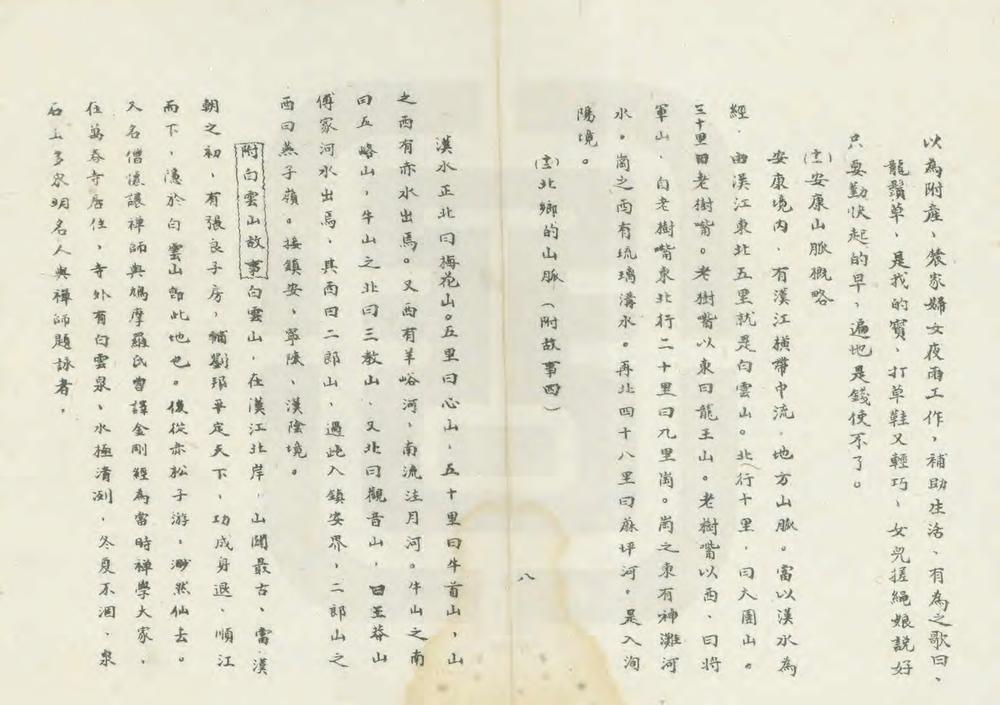 以為附產、農家婦女夜雨工作，補助生活、有為之歌曰、
龍鬚草，是我的寶、打草鞋又輕巧、女兒搓繩娘說好
只要勤快起的早，遍地是錢使不了。
(十二)安康山脈概略
安康境內，有漢江橫帶中流，地方山脈。當以漢水為
經，由漢江東北五里就是白雲山。北行十里，曰大團山。
三十里曰老樹嘴。老樹嘴以東曰龍王山。老樹嘴以西、曰將
軍山，自老樹嘴東北行二十里曰九里崗。崗之東有神灘河
水。崗之西有琉璃溝水。再北四十八里曰麻坪河。是入洵
陽境。
(十三)北鄉的山脈（附故事四）
八
漢水正北曰梅花山。五里曰心山、五十里曰牛首山，山
之西有赤水出焉。又西有羊峪河、南流注月河。牛山之南
曰五峪山，牛山之北曰三教山、又北曰觀音山，曰王莽山
傅家河水出焉，其西曰二郎山、過此入鎮安界，二郎山之
西曰燕子嶺。接鎮安、寧陝、漢陰境。
附白雲山故事 白雲山，在漢江北岸，山闢最古、當漢
朝之初，有張良子房，輔劉邦平定天下，功成身退，順江
而下，隱於白雲山卽此地也。後從赤松子游，渺然仙去。
又名僧懷讓禪師與鳩摩羅氏曾譯金剛經為當時禪學大家，
住萬春寺居住，寺外有白雲泉、水極清冽，冬夏不涸，泉
石上多宋明名人與禪師題詠者，